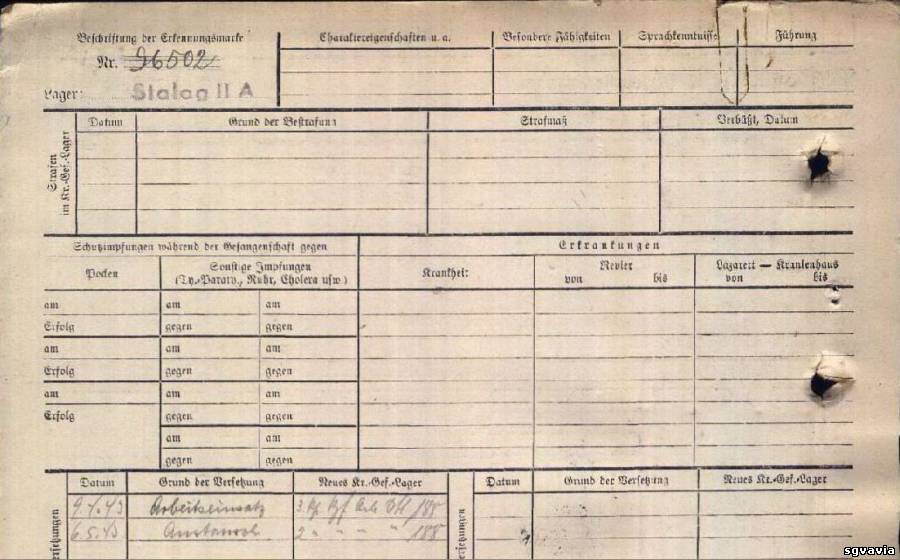 Beschriftung der Erkennungsmarke
Nr. 96502
Lager: Stalag II A
Charaktereigenschaften u. a.
Besondere Fähigkeiten
Sprachkenntnisse
Führung
Strafen
im Kr.-Gef.-Lager
Datum Grund der Bestrafung Strafmaß Verbüßt, Datum
Schutzimpfungen während der Gefangenschaft gegen
Pocken
Sonstige Impfungen
(Ty.-Paraty., Ruhr, Cholera usw)
Erkrankungen
Krankheit
Revier
von bis
Lazarett — Krankenhaus
von bis
am am am
Erfolg gegen gegen
am am am
Erfolg gegen gegen
am am am
Erfolg gegen gegen
am am
gegen gegen
Versetzungen
Datum Grund der Versetzung Neues Kr.-Gef.-Lager
9.4.43 Arbeitseinsatz 188
6.5.43 188
Versetzungen
Datum Grund der Versetzung Neues Kr.-Gef.-Lager
sgvavia